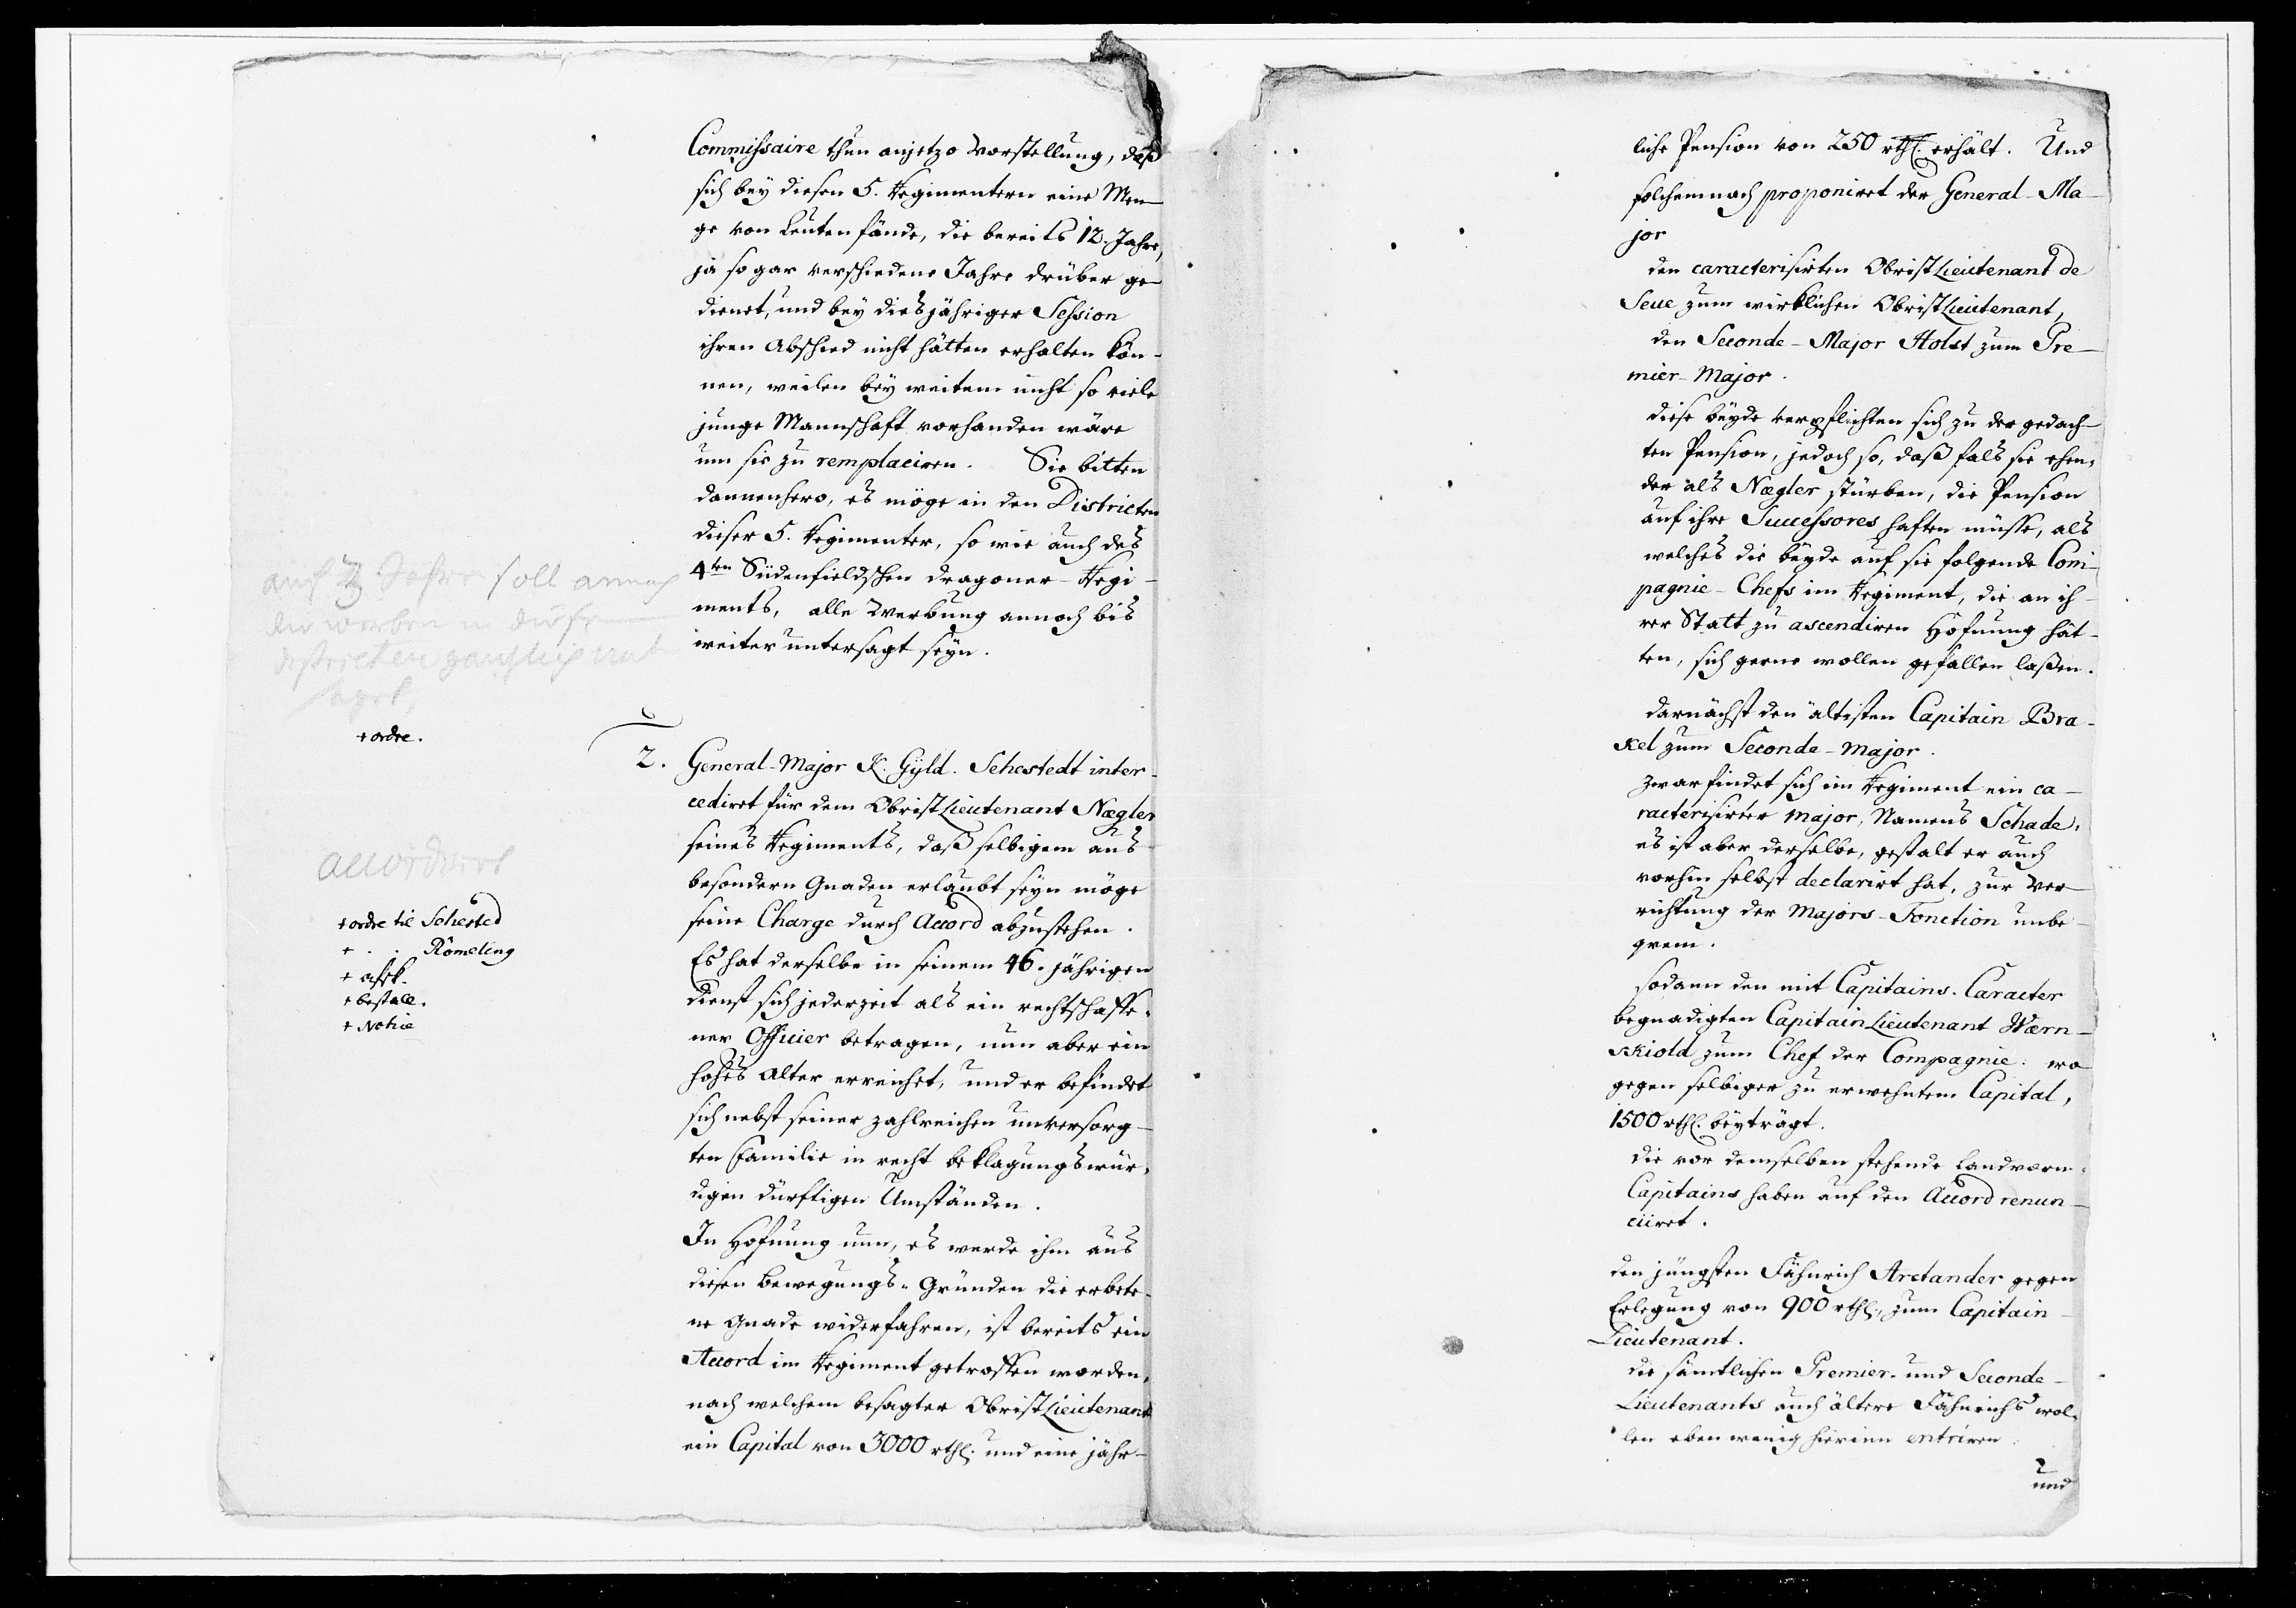 Commissaire thun anjetzo Vorstellung, daß
sich bey diesen 5. Regimentern eine Men-
ge von Leuten fände, die bereits 12. Jahre,
ja sogar verschiedene Jahre drüber ge-
dienet, und bey diesjähriger Session
ihren Abschied nicht hätten erhalten kön-
nen, weilen bey weitem nicht so viele
junge Mannschaft vorhanden wäre
um sie zu remplaciren. Sie bitten
dannenhero, es möge in den Districten
dieser 5. Regimenter, so wie auch des
4ten Südenfieldschen Dragoner-Regi-
ments, alle Werbung annoch bis
weiter untersagt seyn.
auf 3 Jahre soll annoch
die werben in diesen
districten gänzlich unter
sagt,
+ ordre.
2. General-Major K. Gyld. Sehestedt inter-
cediret für dem ObristLieutenant Nægler
seines Regiments, daß selbigem aus
besondern Gnaden erlaubt seyn möge
seine Charge durch Accord abzustehen.
Es hat derselbe in seinem 46. jährigen
Dienst sich jederzeit als ein rechtschaffe-
ner Officier betragen, nun aber ein
hohes Alter erreichet, und er befindet
sich nebst seiner zahlreichen unversorg-
ten Familie in recht beklagungswür-
digen dürftigen Umständen.
In Hofnung nun, es werde ihm aus
diesen Bewegungs-Gründen die erbete-
ne Gnade widerfahren, ist bereits ein
Accord im Regiment getroffen worden,
nach welchem besagter ObristLieutenant
ein Capital von 3000 rthl. und eine jähr-
accordirt
+ ordre til Sehested
+ . . Römeling
+ afsk.
+ bestall.
+ Notice
liche Pension von 250 rthl. erhält. Und
solchemnach proponiret der General-Ma-
jor
den caracterisirten ObristLieutenant de
Seue zum wirklichen ObristLieutenant,
den Seconde-Major Holst zum Pre-
mier-Major.
Diese beyde verpflichten sich zu der gedach-
ten Pension, jedoch so, daß fals sie ehen-
der als Nægler stürben, die Pension
auf ihre Successores haften müsse, als
welches die beyde auf sie folgende Com-
pagnie-Chefs im Regiment, die an ih-
rer Statt zu ascendiren Hofnung hät-
ten, sich gerne wollen gefallen laßen.
Darnächst den ältisten Capitain Bra-
kel zum Seconde-Major.
Zwar findet sich im Regiment ein ca-
racterisirter Major, Namens Schade,
es ist aber derselbe, gestalt er auch
vorhin selbst declarirt hat, zur Ver-
richtung der Majors-Fonction unbe-
qvem.
Sodann den mit Capitains-Caracter
begnadigten CapitainLieutenant Wærn-
skiold zum Chef der Compagnie: wo-
gegen selbiger zu erwehntem Capital,
1500 rthl. beyträgt.
Die vor demselben stehende Landværn-
Capitains haben auf den Accord renun-
ciiret.
Den jüngsten Fähnrich Arctander gegen
Erlegung von 900 rthl., zum Capitain-
Lieutenant.
Die sämtlichen Premier- und Seconde-
Lieutenants auch ältere Fähnrichs wol-
len eben wenig hierinn entriren:
und